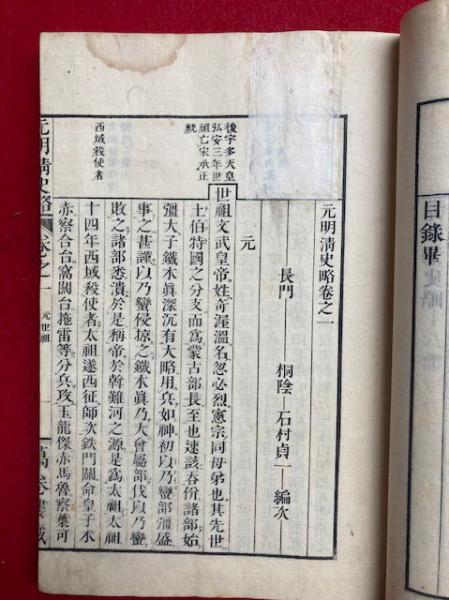 目錄畢
元明清史略卷之一
長門 桐陰 石村貞一 編次
元
世祖文武皇帝姓奇渥溫名忽必烈憲宗同母弟也其先世
土伯特國之分支而爲蒙古部長至也速該吞併諸部始
彊大子鐵木眞深沉有大略用兵如神初以乃蠻部彊盛
事之甚謹以乃蠻侵掠之鐵木眞乃大會屬部伐以乃蠻
敗之諸部悉潰於是稱帝於斡難河之源是爲太祖太
十四年西域殺使者太祖遂西征師次鉄門關命皇子朮
赤察合台窩闊台拖雷等分兵攻玉龍傑赤馬魯察葉可
後宇多天皇
弘安三年世
祖亡宋承正
統
西域殺使者
元明清史略 卷之一 元世祖 萬卷樓藏